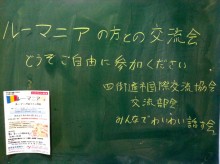 ルーマニアの方との交流会
どうぞご自由に参加ください
四街道市国際交流協会
交流部会
みんなでわいわい話す会